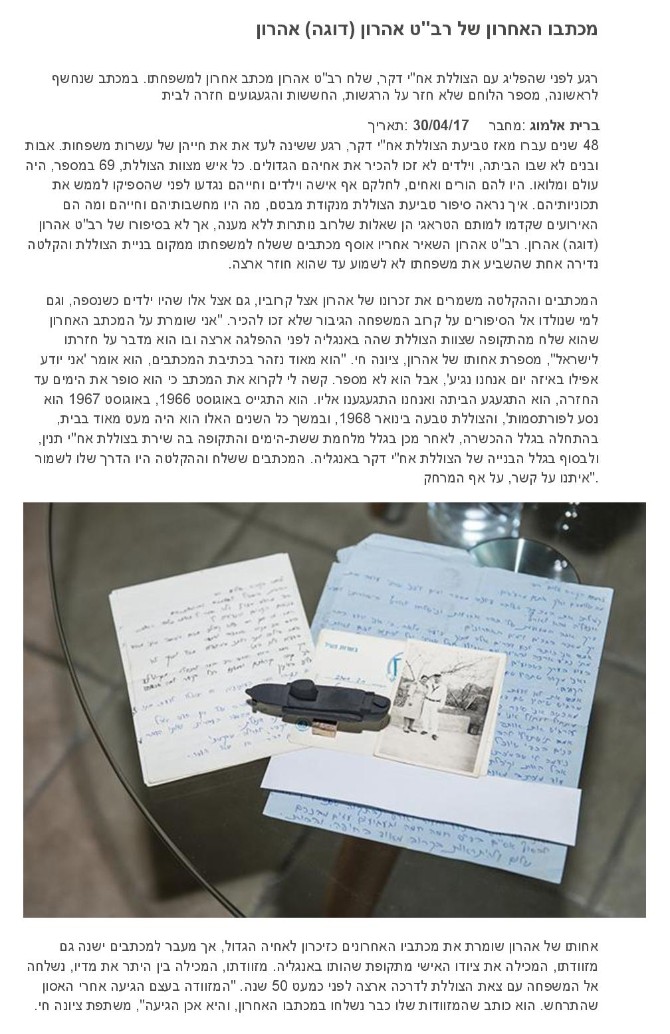 מכתבו האחרון של רב"ט אהרון (דוגה) אהרון
רגע לפני שהפליג עם הצוללת אח"י דקר, שלח רב"ט אהרון מכתב אחרון למשפחתו. במכתב שנחשף
לראשונה, מספר הלוחם שלא חזר על הרגשות, החששות והגעגועים חזרה לבית
ברית אלמוג :מחבר 30/04/17 :תאריך
48 שנים עברו מאז טביעת הצוללת אח"י דקר, רגע ששינה לעד את את חייהן של עשרות משפחות. אבות
ובנים לא שבו הביתה, וילדים לא זכו להכיר את אחיהם הגדולים. כל איש מצוות הצוללת, 69 במספר, היה
עולם ומלואו. היו להם הורים ואחים, לחלקם אף אישה וילדים וחייהם נגדעו לפני שהספיקו לממש את
תכוניותיהם. איך נראה סיפור טביעת הצוללת מנקודת מבטם, מה היו מחשבותיהם וחייהם ומה הם
האירועים שקדמו למותם הטראגי הן שאלות שלרוב נותרות ללא מענה, אך לא בסיפורו של רב"ט אהרון
(דוגה) אהרון. רב"ט אהרון השאיר אחריו אוסף מכתבים ששלח למשפחתו ממקום בניית הצוללת והקלטה
נדירה אחת שהשביע את משפחתו לא לשמוע עד שהוא חוזר ארצה.
המכתבים וההקלטה משמרים את זכרונו של אהרון אצל קרוביו, גם אצל אלו שהיו ילדים כשנספה, וגם
למי שנולדו אל הסיפורים על קרוב המשפחה הגיבור שלא זכו להכיר. "אני שומרת על המכתב האחרון
שהוא שלח מהתקופה שצוות הצוללת שהה באנגליה לפני ההפלגה ארצה ובו הוא מדבר על חזרתו
לישראל", מספרת אחותו של אהרון, ציונה חי. "הוא מאוד נזהר בכתיבת המכתבים, הוא אומר 'אני יודע
אפילו באיזה יום אנחנו נגיע', אבל הוא לא מספר. קשה לי לקרוא את המכתב כי הוא סופר את הימים עד
החזרה, הוא התגעגע הביתה ואנחנו התגעגענו אליו. הוא התגייס באוגוסט 1966, באוגוסט 1967 הוא
נסע לפורתסמות', והצוללת טבעה בינואר 1968, ובמשך כל השנים האלו הוא היה מעט מאוד בבית,
בהתחלה בגלל ההכשרה, לאחר מכן בגלל מלחמת ששת-הימים והתקופה בה שירת בצוללת אח"י תנין,
ולבסוף בגלל הבנייה של הצוללת אח"י דקר באנגליה. המכתבים ששלח וההקלטה היו הדרך שלו לשמור
."איתנו על קשר, על אף המרחק
אחותו של אהרון שומרת את מכתביו האחרונים כזיכרון לאחיה הגדול, אך מעבר למכתבים ישנה גם
מזוודתו, המכילה את ציודו האישי מתקופת שהותו באנגליה. מזוודתו, המכילה בין היתר את מדיו, נשלחה
אל המשפחה עם צאת הצוללת לדרכה ארצה לפני כמעט 50 שנה. "המזוודה בעצם הגיעה אחרי האסון
שהתרחש. הוא כותב שהמזוודות שלו כבר נשלחו במכתבו האחרון, והיא אכן הגיעה", משתפת ציונה חי.